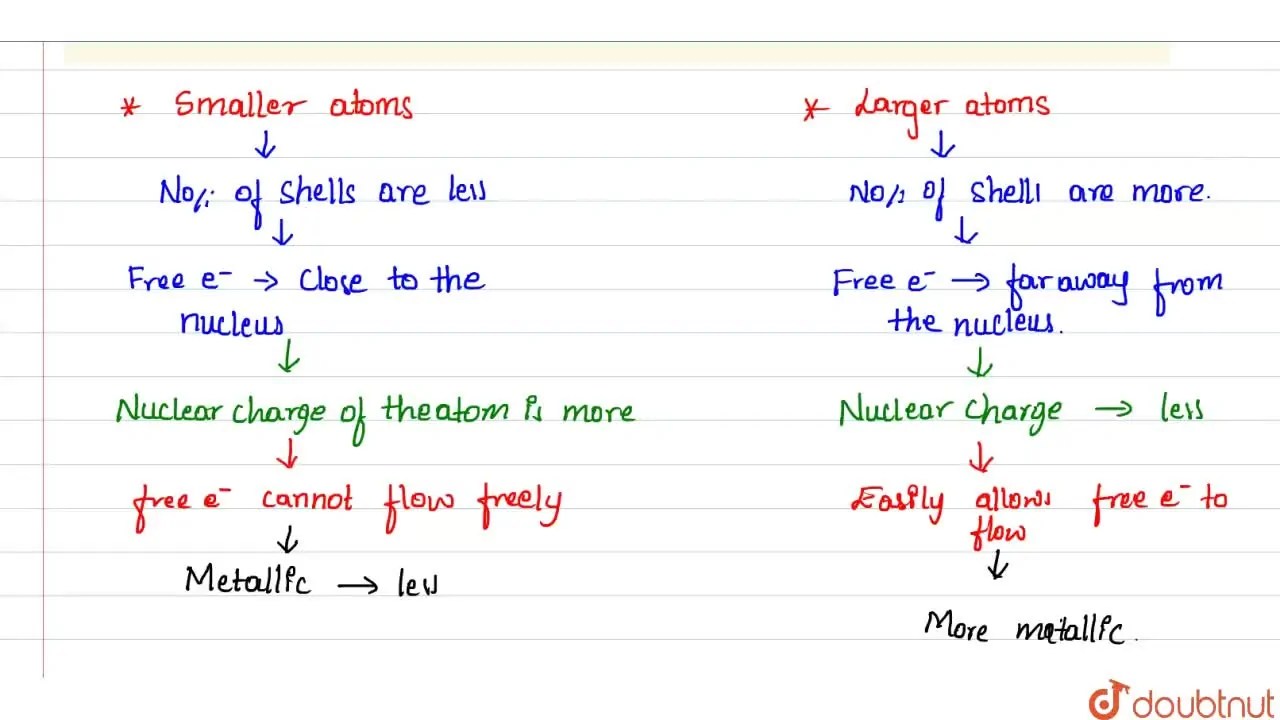 * Smaller atoms
↓
No/: of shells are less
↓
Free e⁻ → Close to the
nucleus
↓
Nuclear charge of the atom is more
↓
free e⁻ cannot flow freely
↓
Metallic → less
* Larger atoms
↓
No/: of shells are more.
↓
Free e⁻ → far away from
the nucleus.
↓
Nuclear charge → less
↓
Easily allows free e⁻ to
flow
↓
More metallic.
doubtnut